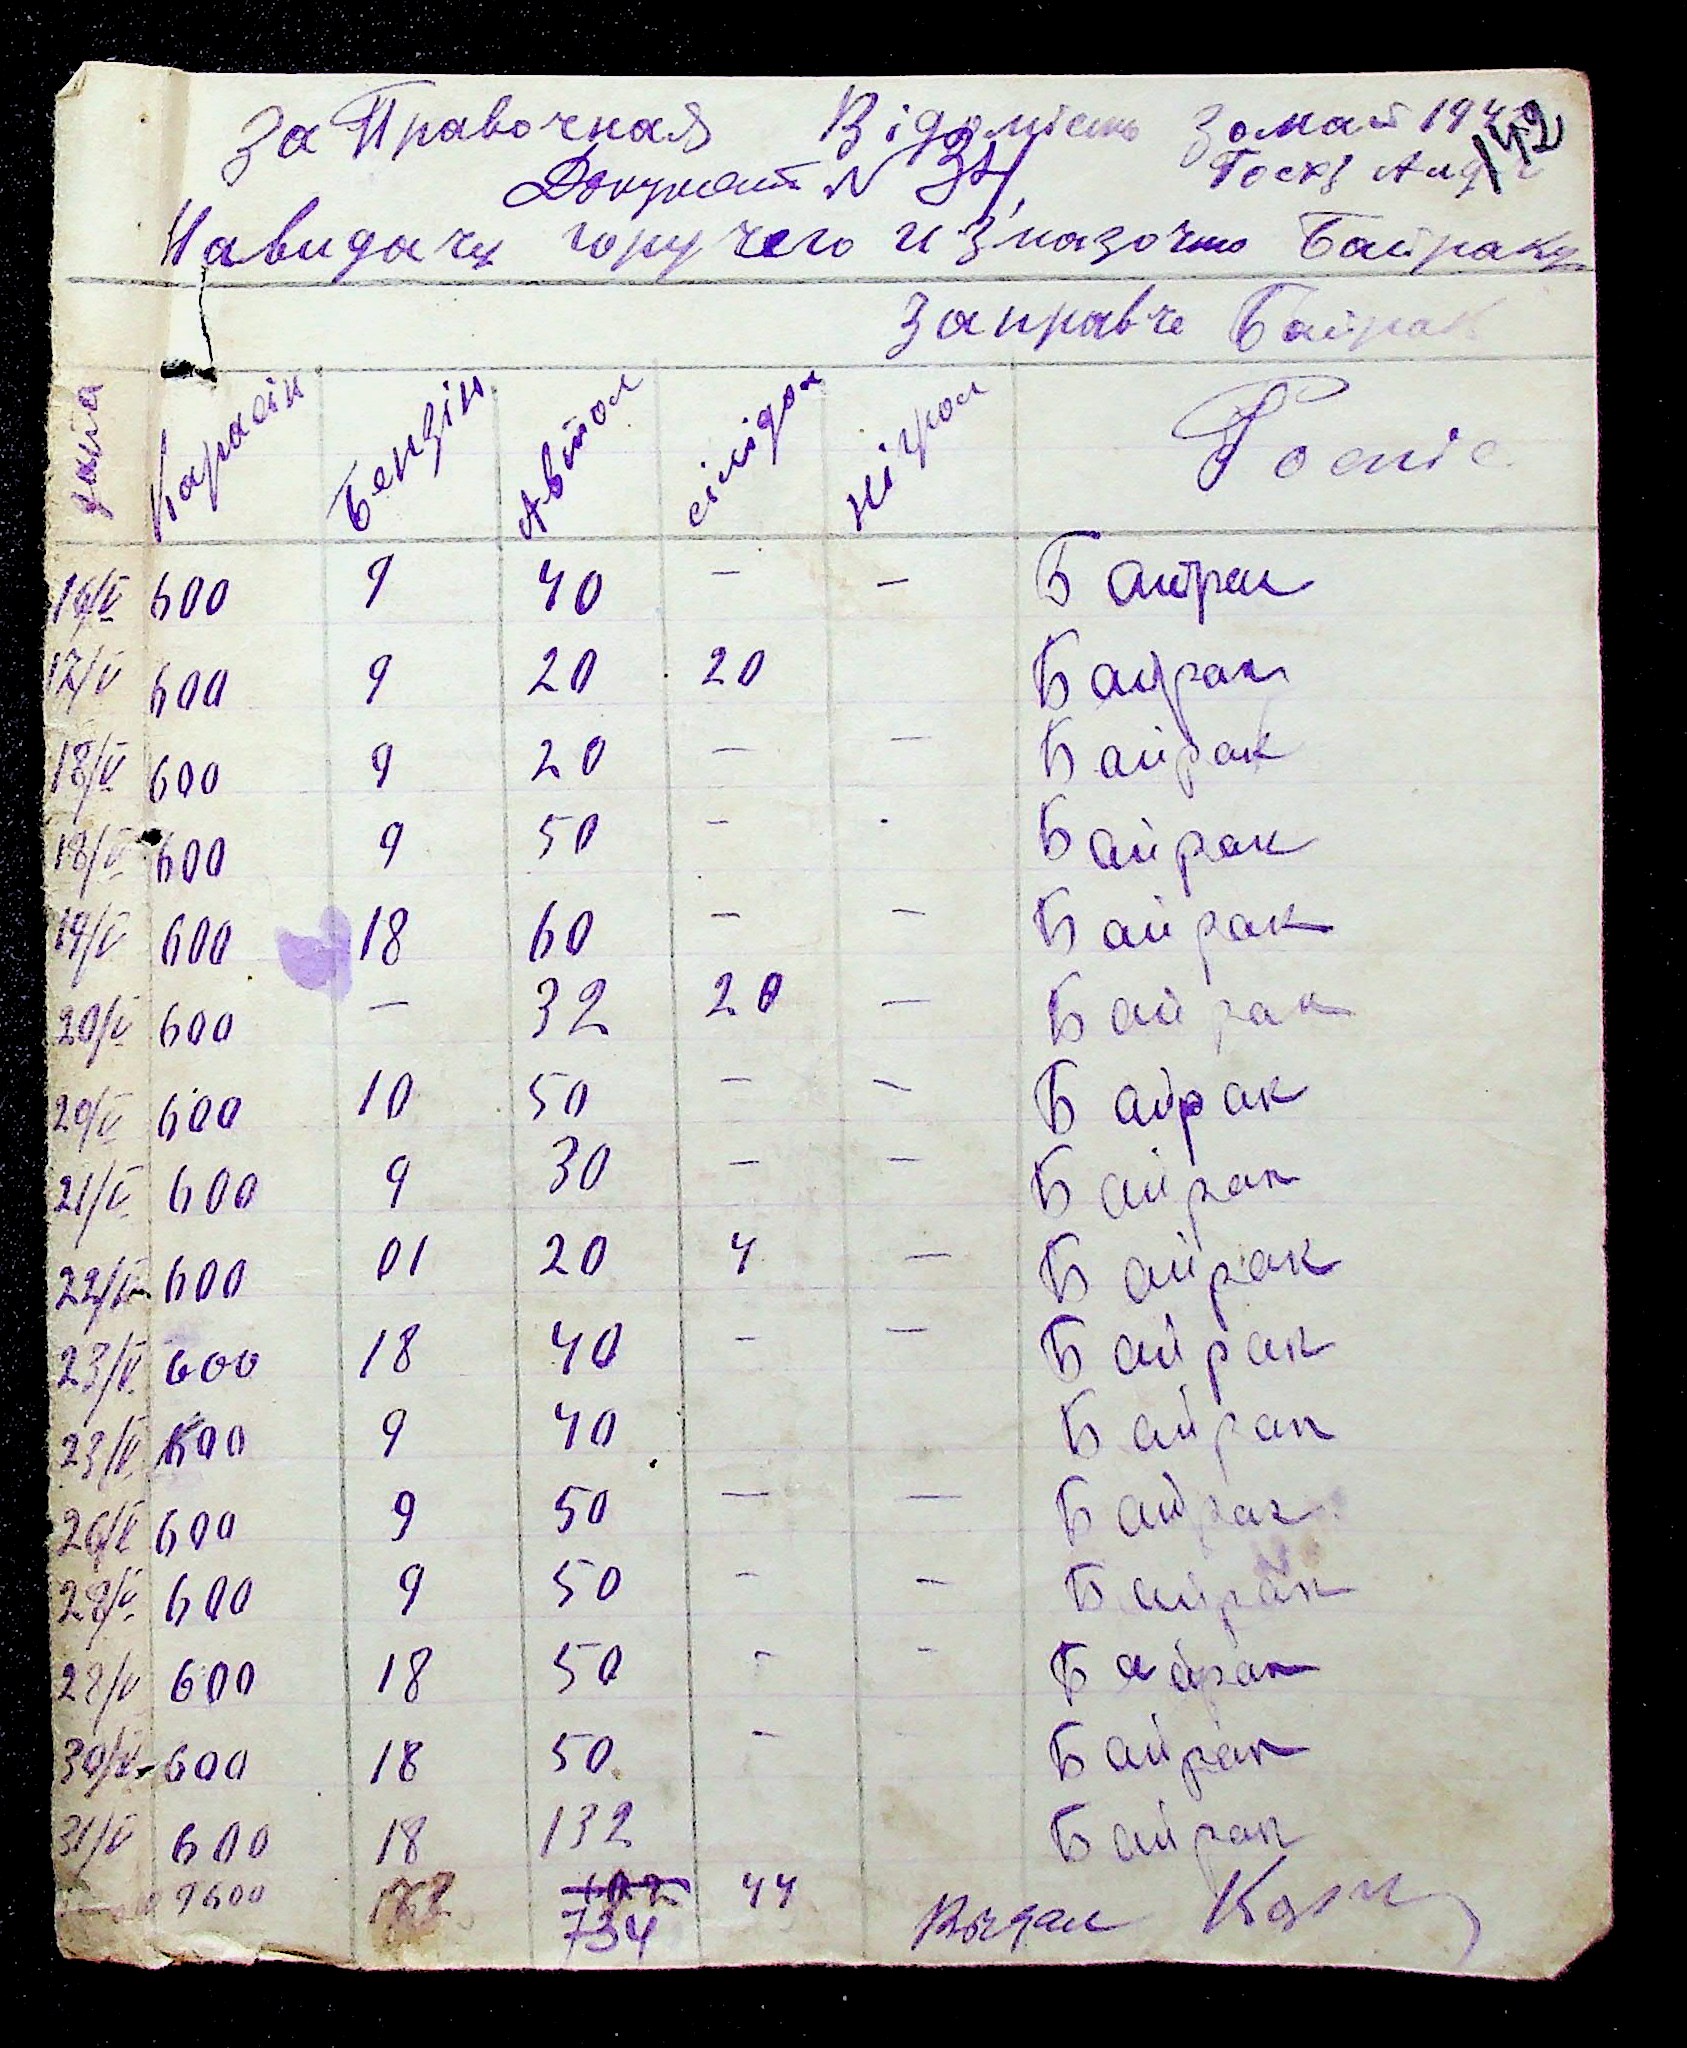 За Правочная Відомість За май 194
142
Документ N 34
На видачу горучего и змазочно Байраку
Заправче Байрак
дата Карасін Бензін Автол сілідол нігрол Роспіс
16/V 600 9 40 – – Байрак
17/V 600 9 20 20 Байрак
18/V 600 9 20 – – Байрак
18/V 600 9 50 – - Байрак
19/V 600 18 60 – – Байрак
20/V 600 – 32 20 – Байрак
20/V 600 10 50 – – Байрак
21/V 600 9 30 – – Байрак
22/V 600 01 20 4 – Байрак
23/V 600 18 40 – – Байрак
23/V 600 9 40 Байрак
26/V 600 9 50 – – Байрак
28/V 600 9 50 – – Байрак
28/V 600 18 50 – – Байрак
30/V 600 18 50 – Байрак
31/V 600 18 132 Байрак
9600 44
734